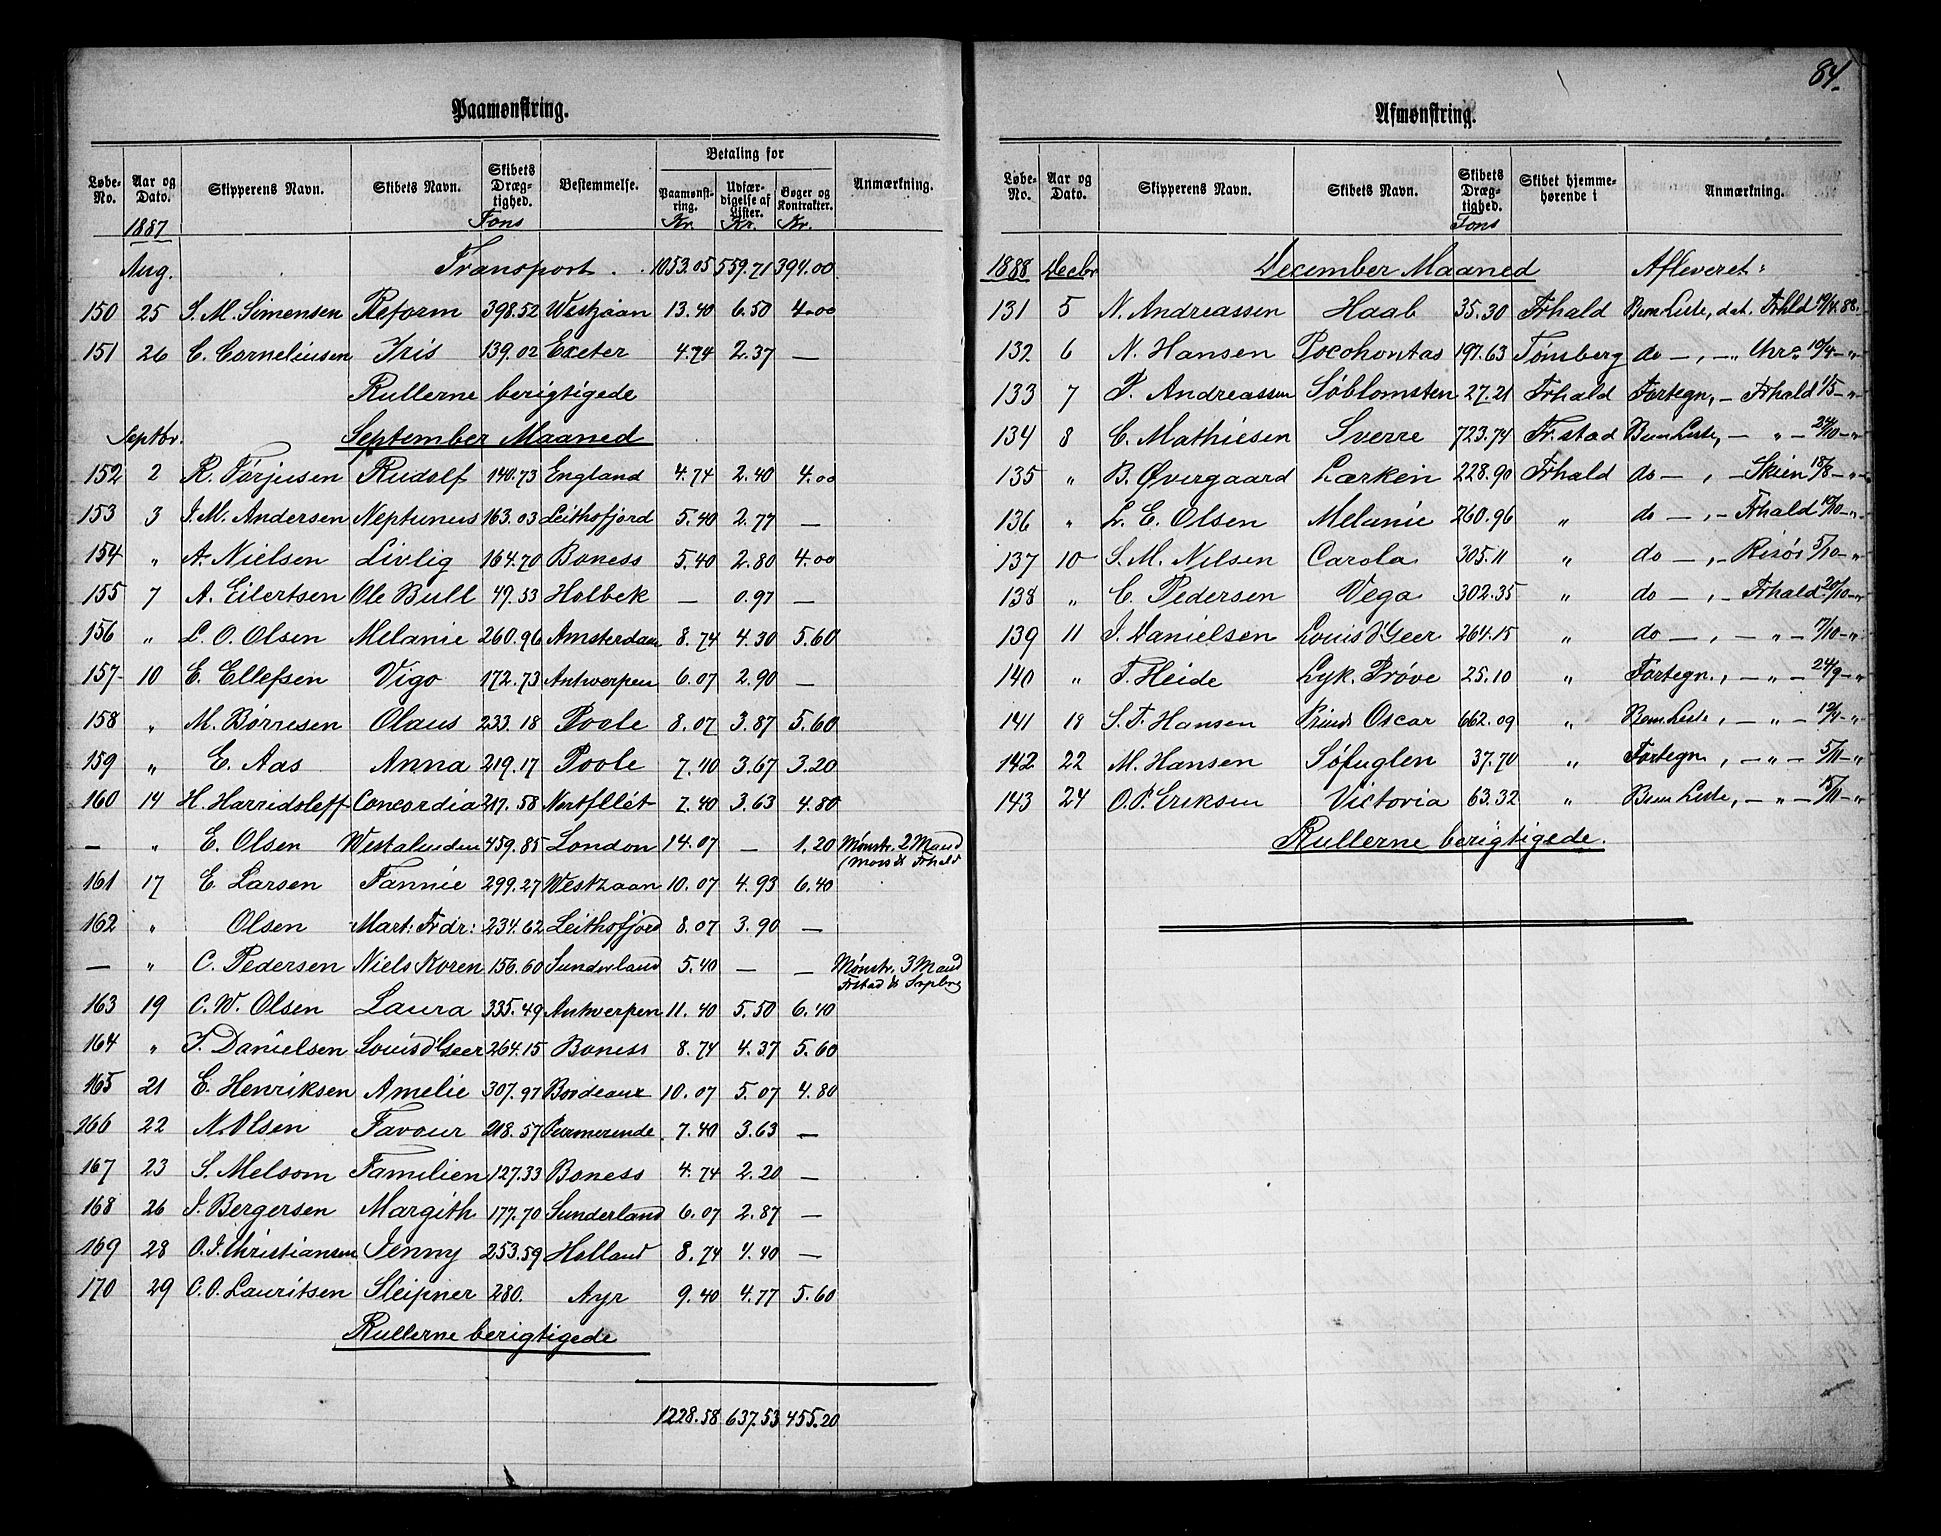 Paamønstring.
Løbe-No. Aar og Dato. Skipperens Navn. Skibets Navn. Skibets Drægtighed. Bestemmelse. Betaling for Paamønstring. Udfærdigelse af Lister. Bøger og Kontrakter. Anmærkning.
1887 Tons Kr. Kr. Kr.
Aug. Transport . 1053.05 559.71 394.00
150 25 S. M. Simensen Reform 398.52 Westzaan 13.40 6.50 4.00
151 26 C. Corneliusen Iris 139.02 Exeter 4.74 2.37 —
Rullerne berigtigede
Septbr. September Maaned
152 2 R. Torjusen Rudolf 140.73 England 4.74 2.40 4.00
153 3 J. M. Andersen Neptunus 163.03 Leithofjord 5.40 2.77 —
154 " A. Nielsen Livlig 164.70 Boness 5.40 2.80 4.00
155 7 A. Eilertsen Ole Bull 49.53 Holbek — 0.97 —
156 " L. O. Olsen Melanie 260.96 Amsterdam 8.74 4.30 5.60
157 10 E. Ellefsen Vigo 172.73 Antwerpen 6.07 2.90 —
158 " M. Børresen Olaus 233.18 Poole 8.07 3.87 5.60
159 " E. Aas Anna 219.17 Poole 7.40 3.67 3.20
160 14 H. Harridsleff Concordia 217.58 7.40 3.63 4.80
— " E. Olsen 459.85 London 14.07 — 1.20 Mønstr. 2 Mand
(Moss & Frhald
161 17 E. Larsen Fannie 299.27 Westzaan 10.07 4.93 6.40
162 " Olsen Mart: Frdr: 234.62 Leithofjord 8.07 3.90 —
— " C. Pedersen Niels Koren 156.60 Sunderland 5.40 — — Mønstr. 3 Mand
Frstad & Srpbrg
163 19 C. W. Olsen Laura 335.49 Antwerpen 11.40 5.50 6.40
164 " J. Danielsen Louis d'Geer 264.15 Boness 8.74 4.37 5.60
165 21 E. Henriksen Amelie 307.97 Bordeaux 10.07 5.07 4.80
166 22 N. Olsen Favour 218.57 Purmerende 7.40 3.63 —
167 23 S. Melsom Familien 127.33 Boness 4.74 2.20 —
168 26 J. Bergersen Margith 177.70 Sunderland 6.07 2.87 —
169 28 O. J. Christiansen Jenny 253.59 Holland 8.74 4.40 —
170 29 C. O. Lauritsen Sleipner 280. Ayr 9.40 4.77 5.60
Rullerne berigtigede
1228.58 637.53 455.20
84.
Afmønstring.
Løbe-No. Aar og Dato. Skipperens Navn. Skibets Navn. Skibets Drægtighed. Skibet hjemmehørende i Anmærkning.
Tons
1888 Decbr December Maaned Afleveret:
131 5 N. Andreassen Haab 35.30 Frhald Bem. Liste, dat. Frhld 19/4 88.
132 6 N. Hansen Pocohontas 197.63 Tønsberg do —, — " 19/4 — "
133 7 P. Andreassen Søblomsten 27.21 Frhald Fortegn, — Frhald 1/5 — "
134 8 C. Mathiesen Sverre 723.74 Fr.stad Bem Liste, — " — 24/10 — "
135 " B. Øvergaard Lærken 228.90 Frhald do —, — Skien 18/8 — "
136 " L. E. Olsen Melanie 260.96 " do —, — Frhald 19/10 — "
137 10 S. M. Nilsen Carola 305.11 " do —, — Risør 5/10 — "
138 " C. Pedersen Vega 302.35 " do —, — Frhald 20/10 — "
139 11 J. Danielsen Louis d'Geer 264.15 " do —, — " — 7/10 — "
140 " T. Heide Lyk. Prøve 25.10 " Fortegn., — " — 24/9 — "
141 18 S. T. Hansen Prinds Oscar 662.09 " Bem Liste, — " — 12/4 — "
142 22 M. Hansen Søfuglen 37.70 " Fortegn, — " — 5/11 — "
143 24 O. P. Eriksen Victoria 63.32 " Bem Liste, — " — 15/11 — "
Rullerne berigtigede.